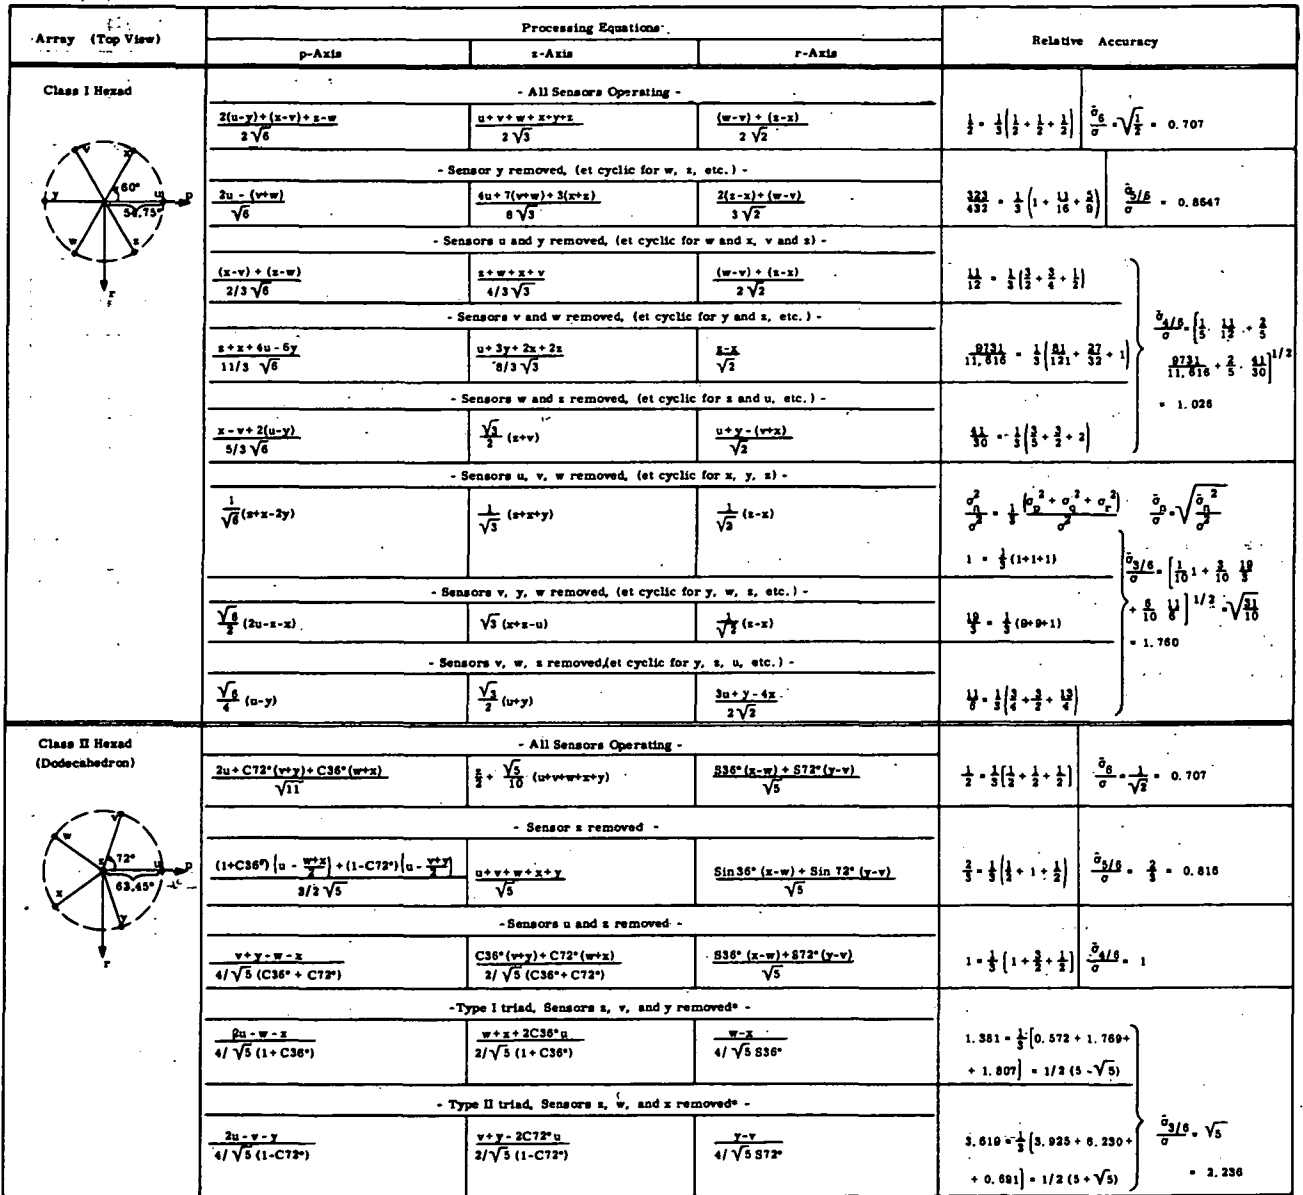 Array (Top View)
Processing Equations
Relative Accuracy
p-Axis
z-Axis
r-Axis
Class I Hexad
v x y u p w z r
60°
54.75°
- All Sensors Operating -
2(u-y)+(x-v)+z-w / 2√6
u+v+w+x+y+z / 2√3
(w-v) + (z-x) / 2√2
1/2 = 1/3(1/2 + 1/2 + 1/2)
σ̄6/σ = √(1/2) = 0.707
- Sensor y removed, (et cyclic for w, z, etc.) -
2u - (v+w) / √6
4u+7(v+w)+3(x+z) / 8√3
2(z-x)+(w-v) / 3√2
323/432 = 1/3(1 + 11/16 + 5/9)
σ̄5/6/σ = 0.8647
- Sensors u and y removed, (et cyclic for w and x, v and z) -
(x-v) + (z-w) / 2/3 √6
z+w+x+v / 4/3 √3
(w-v) + (z-x) / 2√2
11/12 = 1/3(3/2 + 3/4 + 1/2)
- Sensors v and w removed, (et cyclic for y and z, etc.) -
z+x+4u-6y / 11/3 √6
u+3y+2x+2z / 8/3 √3
z-x / √2
9731/11,616 = 1/3(81/121 + 27/32 + 1)
σ̄4/6/σ = {1/5 · 11/12 + 2/5
9731/11,616 + 2/5 · 41/30]^1/2
= 1.026
- Sensors w and z removed, (et cyclic for z and u, etc.) -
x-v+2(u-y) / 5/3 √6
√3/2 (z+v)
u+y-(v+x) / √2
41/30 = 1/3(3/5 + 3/2 + 2)
- Sensors u, v, w removed, (et cyclic for x, y, z) -
1/√6 (z+x-2y)
1/√3 (z+x+y)
1/√2 (z-x)
σn²/σ² = 1/3 (σp² + σq² + σr²)/σ²
σ̄n/σ = √(σ̄n²/σ²)
1 = 1/3 (1+1+1)
- Sensors v, y, w removed, (et cyclic for y, w, z, etc.) -
√6/2 (2u-z-x)
√3 (x+z-u)
1/√2 (z-x)
19/3 = 1/3 (9+9+1)
σ̄3/6/σ = [1/10 1 + 3/10 19/3
+ 6/10 11/6]^1/2 = √(31/10)
= 1.760
- Sensors v, w, z removed,(et cyclic for y, z, u, etc.) -
√6/4 (u-y)
√3/2 (u+y)
3u+y-4x / 2√2
11/6 = 1/3(3/4 + 3/2 + 13/4)
Class II Hexad
(Dodecahedron)
v w z u p x y r
72°
63.45°
- All Sensors Operating -
2u+C72°(v+y)+C36°(w+x) / √11
z/2 + √5/10 (u+v+w+x+y)
S36°(x-w)+S72°(y-v) / √5
1/2 = 1/3[1/2 + 1/2 + 1/2]
σ̄6/σ = 1/√2 = 0.707
- Sensor z removed -
(1+C36°){u - w+x/2} + (1-C72°){u - v+y/2} / 3/2 √5
u+v+w+x+y / √5
Sin 36° (x-w) + Sin 72° (y-v) / √5
2/3 = 1/3(1/2 + 1 + 1/2)
σ̄5/6/σ = 2/3 = 0.816
- Sensors u and z removed -
v+y-w-x / 4/√5 (C36° + C72°)
C36°(v+y)+C72°(w+x) / 2/√5 (C36°+C72°)
S36°(x-w)+S72°(y-v) / √5
1 = 1/3 [1 + 3/2 + 1/2]
σ̄4/6/σ = 1
-Type I triad, Sensors z, v, and y removed* -
2u-w-x / 4/√5 (1+C36°)
w+x+2C36°u / 2/√5 (1+C36°)
w-x / 4/√5 S36°
1.381 = 1/3 [0.572 + 1.769+
+ 1.807] = 1/2 (5-√5)
- Type II triad, Sensors z, w, and x removed* -
2u-v-y / 4/√5 (1-C72°)
v+y-2C72°u / 2/√5 (1-C72°)
y-v / 4/√5 S72°
3.619 = 1/3 [3.925 + 6.230 +
+ 0.691] = 1/2 (5+√5)
σ̄3/6/σ = √5
= 2.236